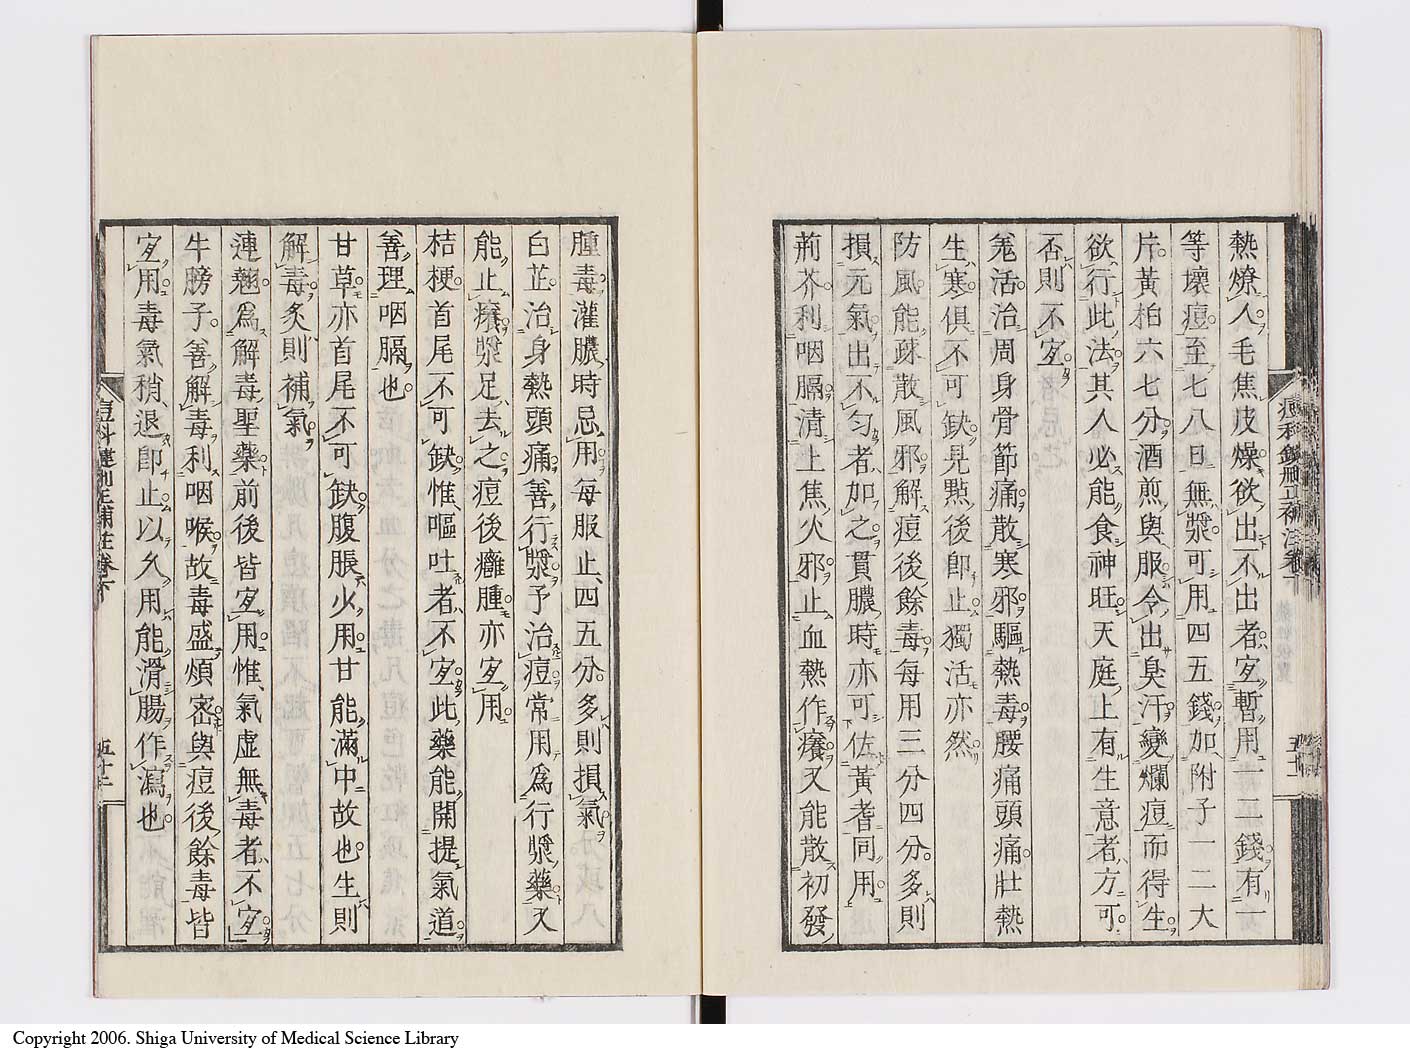 熱燎人毛焦皮燥欲出不出者宜暫用一二錢有一
等壞痘至七八日無漿可用四五錢加附子一二大
片黃柏六七分酒煎與服令出臭汗變爛痘而得生
欲行此法其人必能食神旺天庭上有生意者方可
否則不宜
羌活治周身骨節痛散寒邪驅熱毒腰痛頭痛壯熱
生寒俱不可缺見點後即止獨活亦然
防風能疎散風邪解痘後餘毒每用三分四分多則
損元氣出不匀者加之貫膿時亦可佐黃耆同用
荊芥利咽膈清上焦火邪止血熱作癢又能散初發
腫毒灌膿時忌用每服止四五分多則損氣
白芷治身熱頭痛善行漿予治痘常用爲行漿藥又
能止癢漿足去之痘後癰腫亦宜用
桔梗首尾不可缺惟嘔吐者不宜此藥能開提氣道
善理咽膈也
甘草亦首尾不可缺腹脹少用甘能滿中故也生則
解毒炙則補氣
連翹爲解毒聖藥前後皆宜用惟氣虛無毒者不宜
牛膀子善解毒利咽喉故毒盛煩密與痘後餘毒皆
宜用毒氣稍退即止以久用能滑腸作瀉也
五十二
Copyright 2006. Shiga University of Medical Science Library